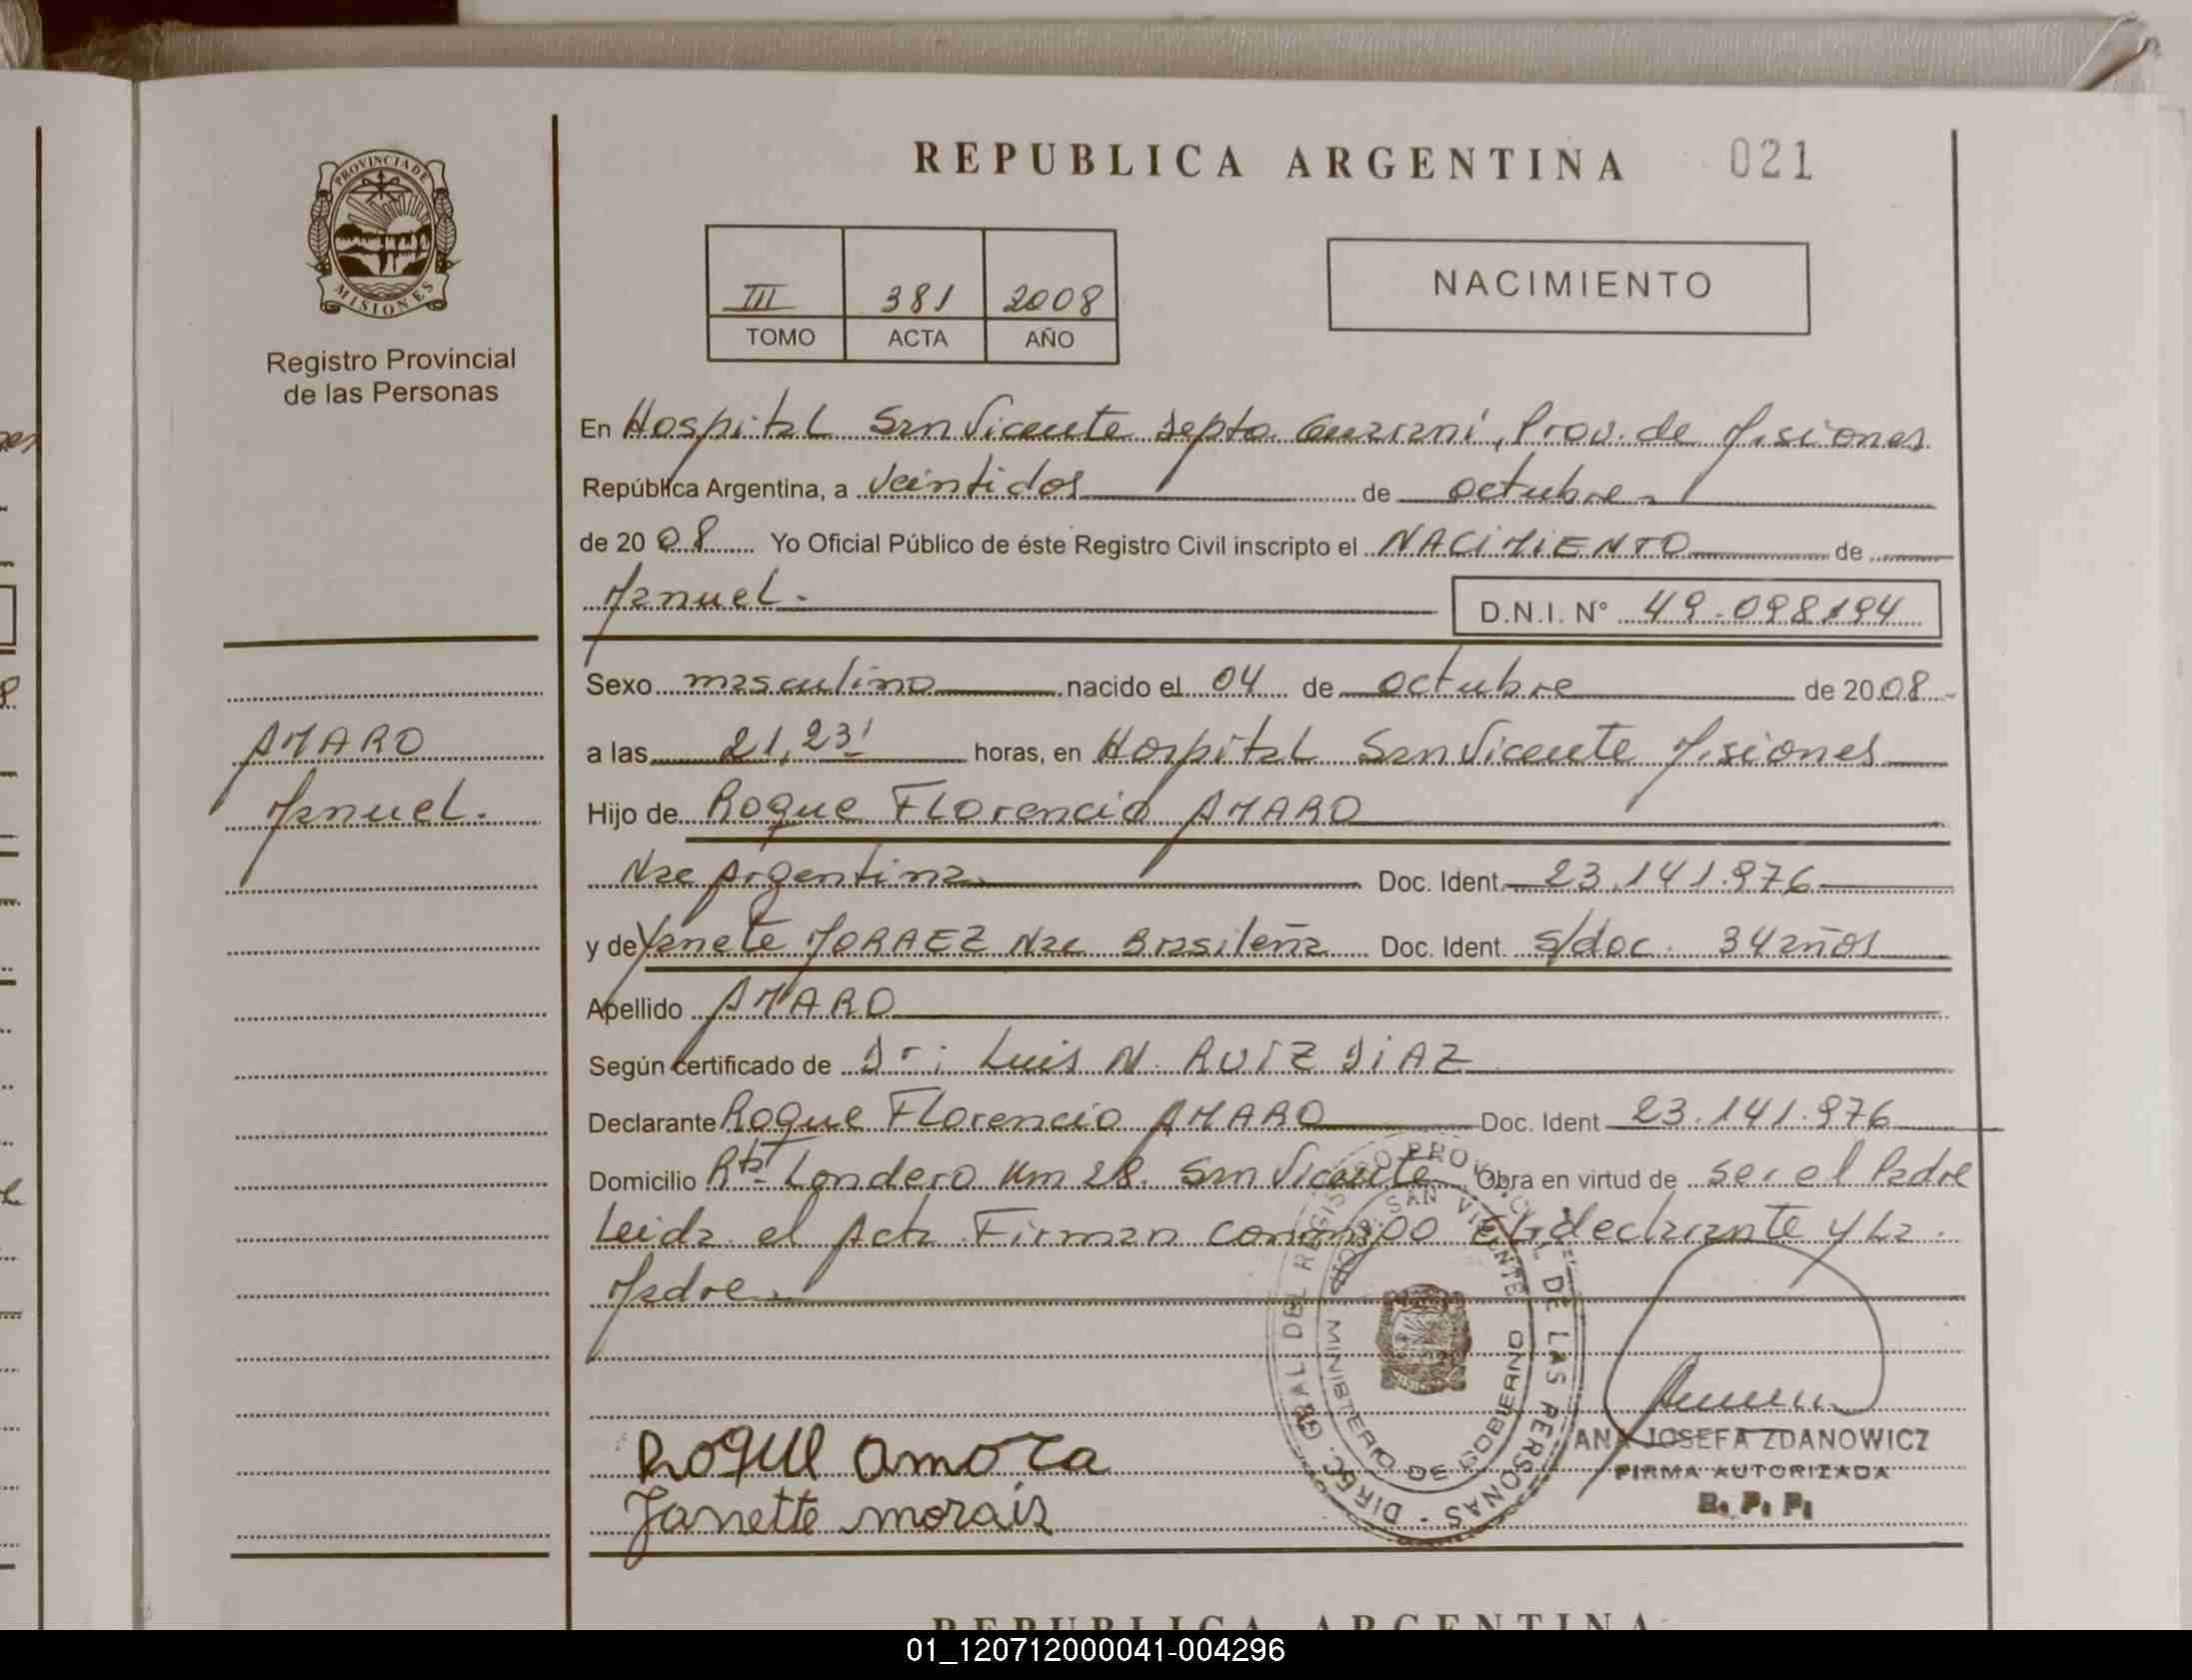 REPUBLICA ARGENTINA 021
PROVINCIA DE
MISIONES
Registro Provincial
de las Personas
III 381 2008
TOMO ACTA AÑO
NACIMIENTO
En Hospital San Vicente Depto Guarani, Prov. de Misiones
República Argentina, a Veintidos de octubre
de 2008 Yo Oficial Público de éste Registro Civil inscripto el NACIMIENTO de
Manuel. D.N.I. N° 49.098194
Sexo masculino nacido el 04 de octubre de 2008
AMARO
Manuel.
a las 21,23' horas, en Hospital San Vicente Misiones
Hijo de Roque Florencio AMARO
Nac Argentina Doc. Ident. 23.141.976
y de Yanete MORAEZ Nac Brasileña Doc. Ident. s/doc. 34 años
Apellido AMARO
Según certificado de Dr: Luis N. RUIZ DIAZ
Declarante Roque Florencio AMARO Doc. Ident 23.141.976
Domicilio Rta Londero Km 28. San Vicente Obra en virtud de ser el Padre
Leida el Acta Firman conmigo El declarante y La
Madre
DIREC. GRAL. DEL REGISTRO PROVINCIAL DE LAS PERSONAS
SAN VICENTE
MINISTERIO DE GOBIERNO
Roque amora
Janette morais
ANA JOSEFA ZDANOWICZ
FIRMA AUTORIZADA
R. P. P.
REPUBLICA ARGENTINA
01_120712000041-004296